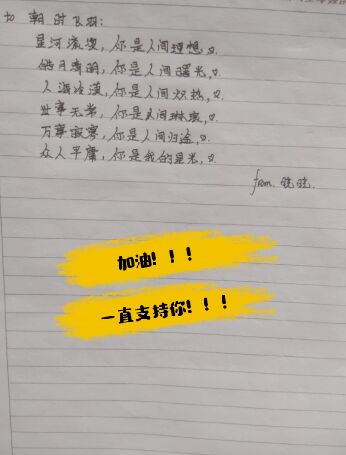 to 朝时飞羽:
星河滚烫,你是人间理想,
皓月清明,你是人间曙光,
人海冷漠,你是人间炽热,
世事无常,你是人间琳琅,
万事寂寥,你是人间归途,
众人平庸,你是我的星光,
from 晓晓.
加油!!!
一直支持你!!!